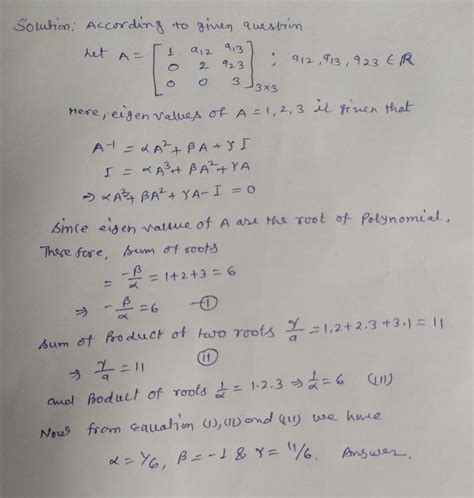 Solution: According to given question
Let A = [ 1 a12 a13
0 2 a23
0 0 3 ]3×3 ; a12, a13, a23 ∈ R
Here, eigen values of A = 1, 2, 3 it given that
A⁻¹ = αA² + βA + γI
I = αA³ + βA² + γA
⇒ αA³ + βA² + γA - I = 0
Since eigen value of A are the root of Polynomial.
Therefore, sum of roots
= -β/α = 1+2+3 = 6
⇒ -β/α = 6 —(I)
Sum of Product of two roots γ/α = 1.2+2.3+3.1 = 11
⇒ γ/α = 11 (II)
and Poduct of roots 1/α = 1.2.3 ⇒ 1/α = 6 (III)
Now from Equation (I), (II) and (III) we have
α = 1/6, β = -1 & γ = 11/6. Answer.